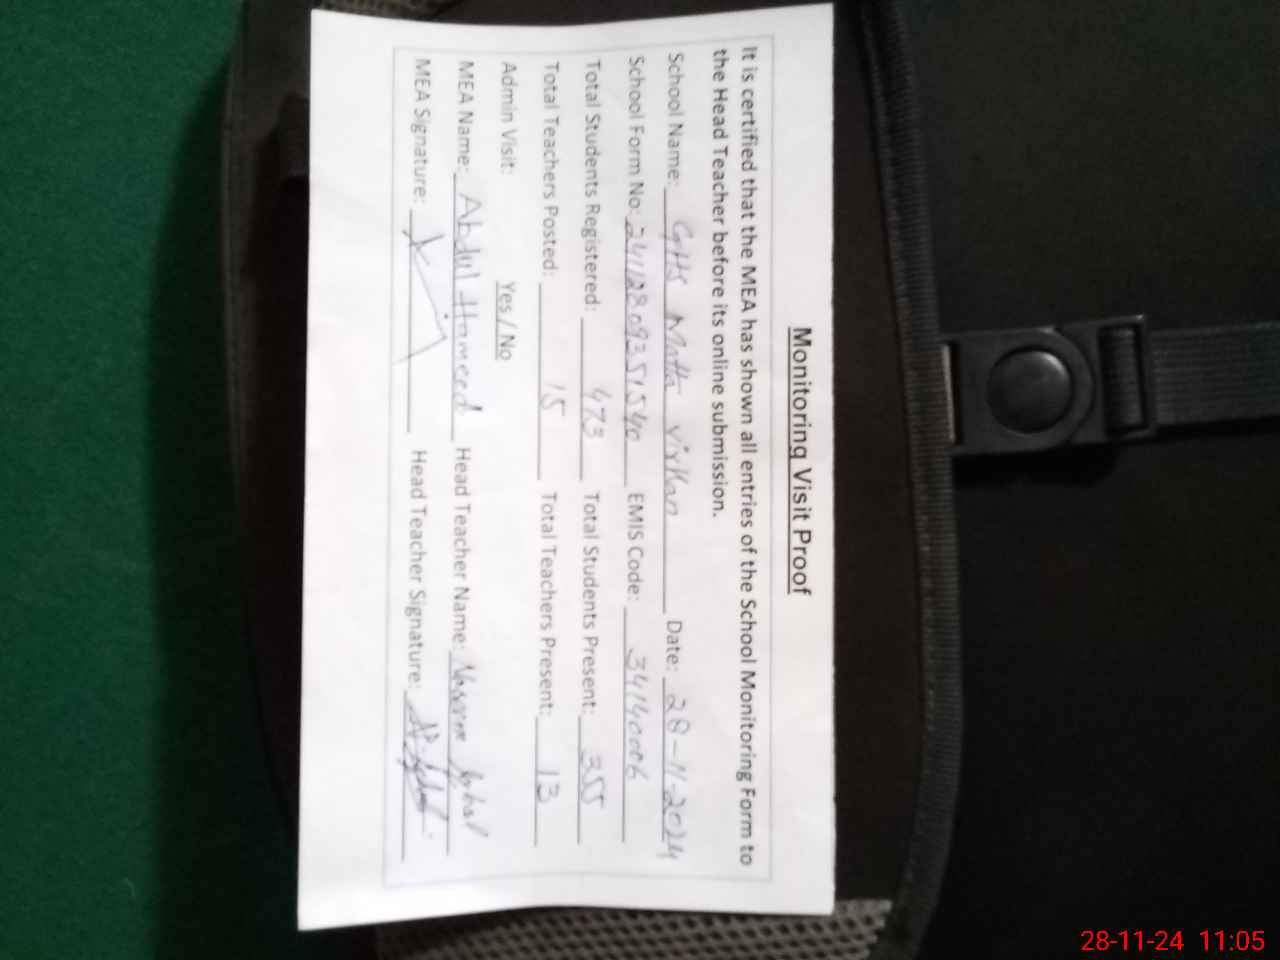 Monitoring Visit Proof
It is certified that the MEA has shown all entries of the School Monitoring Form to
the Head Teacher before its online submission.
School Name: GHS Matta Virkan Date: 28-11-2024
School Form No: EMIS Code:
Total Students Registered: 473 Total Students Present: 355
Total Teachers Posted: 15 Total Teachers Present: 13
Admin Visit: Yes / No
MEA Name: Abdul Hameed Head Teacher Name:
MEA Signature: Head Teacher Signature:
28-11-24 11:05